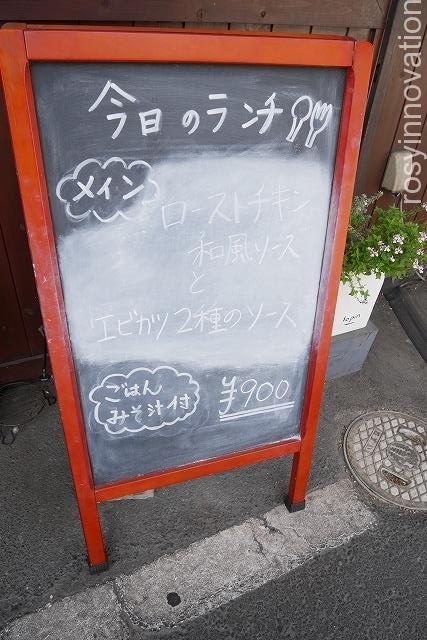 今日のランチ
メイン
ローストチキン
和風ソース
と
エビカツ2種のソース
ごはん
みそ汁付
¥900
rosyinnovation